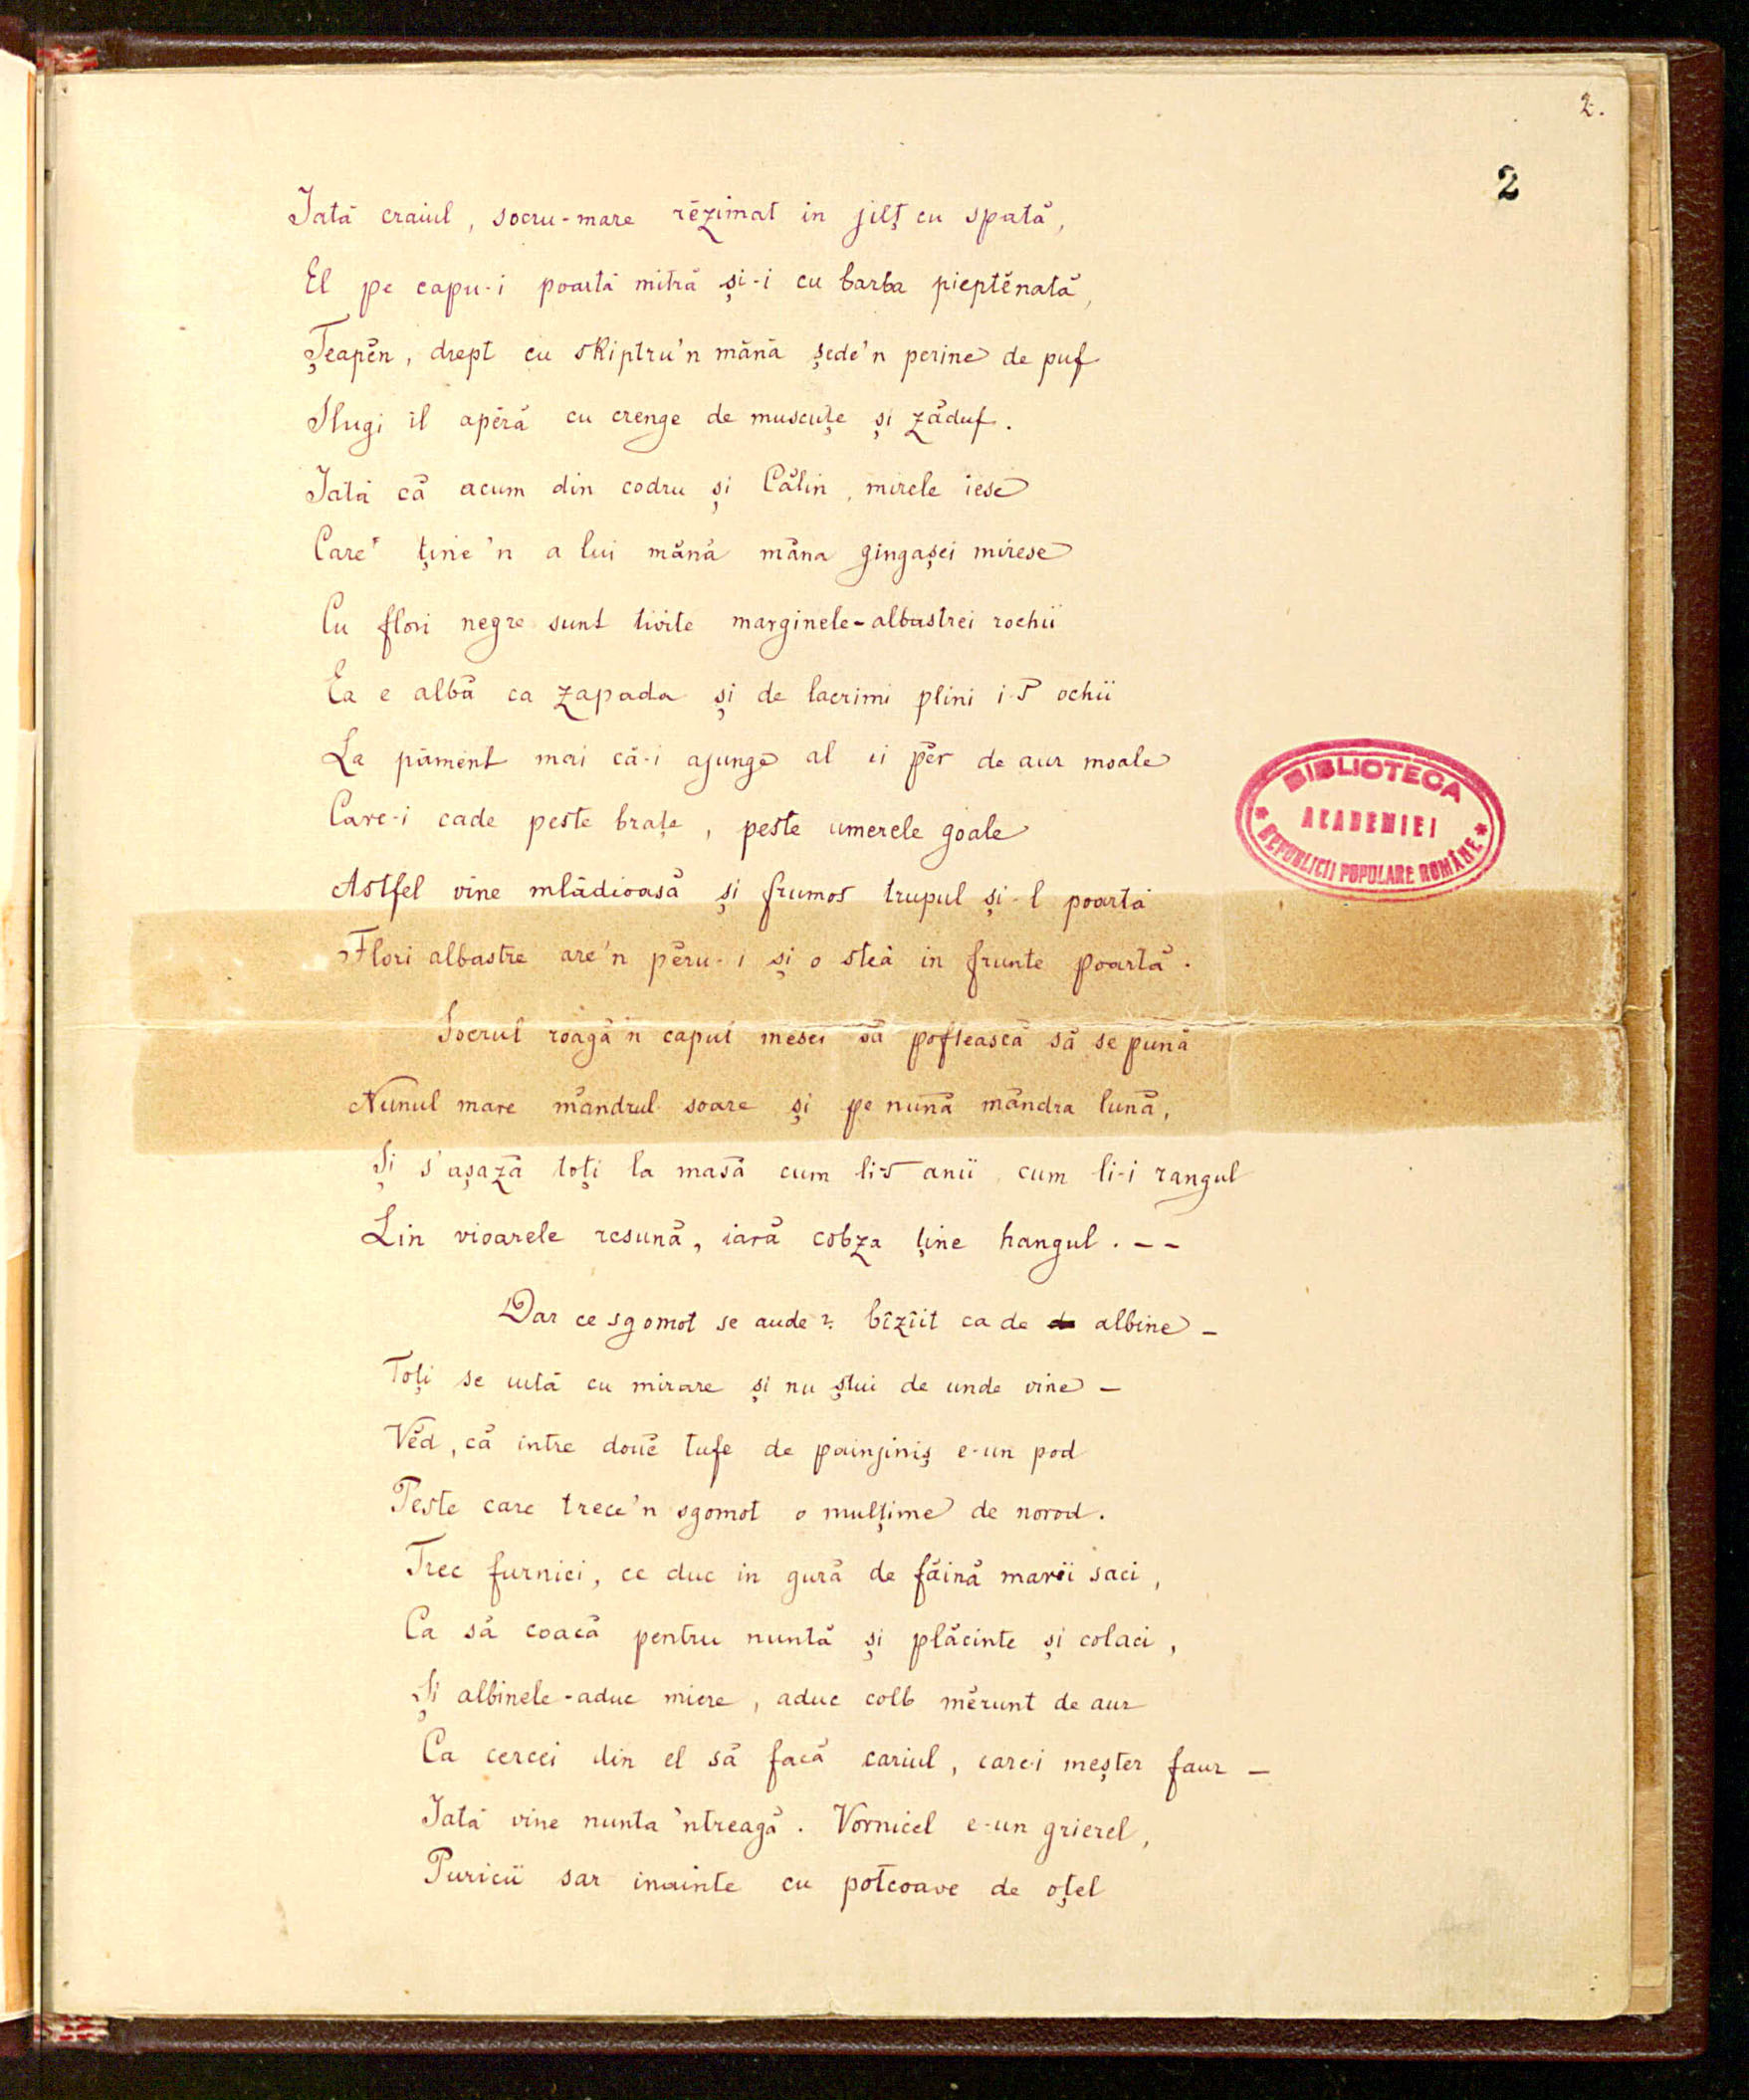 2.
2
Iată craiul, socru-mare rĕzimat in jilţ cu spată,
El pe capu-i poartă mitră şi-i cu barba pieptĕnată,
Ţeapĕn, drept cu skiptru'n mănă şede'n perine de puf
Slugi il apĕră cu crenge de muscuţe şi zăduf.
Iată că acum din codru şi Călin, mirele iese
Care' ţine'n a lui mănă măna gingaşei mirese
Cu flori negre sunt tivite marginele-albastrei rochii
Ea e albă ca zapada şi de lacrimi plini i-s ochii
La păment mai că-i ajunge al ei pĕr de aur moale
Care-i cade peste braţe, peste umerele goale
Astfel vine mlădioasă şi frumos trupul şi-l poartă
Flori albastre are'n pĕru-i şi o stea in frunte poartă.
Socrul roagă'n capul mesei să poftească să se pună
Nunul mare măndrul soare şi pe nună măndra lună,
Şi s'aşază toţi la masă cum li-s anii cum li-i rangul
Lin vioarele resună, iară cobza ţine hangul. --
Dar ce sgomot se aude? bîzîit ca de albine -
Toţi se uită cu mirare şi nu ştiu de unde vine -
Vĕd, că intre douĕ tufe de painjiniş e-un pod
Peste care trece'n sgomot o mulţime de norod.
Trec furnici, ce duc in gură de făină marii saci,
Ca să coacă pentru nuntă şi plăcinte şi colaci,
Şi albinele-aduc miere, aduc colb mĕrunt de aur
Ca cercei din el să facă cariul, care-i meşter faur -
Iată vine nunta 'ntreagă. Vornicel e-un grierel,
Puricii sar inainte cu potcoave de oţel
BIBLIOTECA
ACADEMIEI
* REPUBLICII POPULARE ROMÂNE *